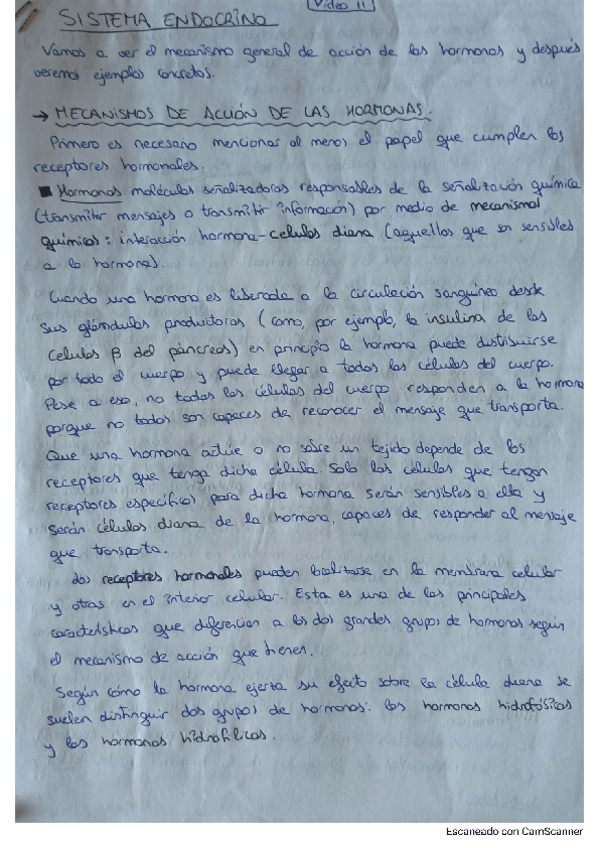 Video 11
SISTEMA ENDOCRINO
Vamos a ver el mecanismo general de acción de las hormonas y después
veremos ejemplos concretos.
→ MECANISMOS DE ACCIÓN DE LAS HORMONAS.
Primero es necesario mencionar al menos el papel que cumplen los
receptores hormonales.
■ Hormonas: moléculas señalizadoras responsables de la señalización química
(transmitir mensajes o transmitir información) por medio de mecanismos
químicos: interacción hormona-celulas diana (aquellas que son sensibles
a la hormona).
Cuando una hormona es liberada a la circulación sanguínea desde
sus glándulas productoras (como, por ejemplo, la insulina de las
celulas β del páncreas) en principio la hormona puede distibuirse
por todo el cuerpo y puede llegar a todas las células del cuerpo.
Pese a eso, no todas las células del cuerpo responden a la hormona
porque no todas son capaces de reconocer el mensaje que transporta.
Que una hormona actúe o no sobre un tejido depende de los
receptores que tenga dicha célula. Solo las células que tengan
receptores específicos para dicha hormona serán sensibles a ella y
serán células diana de la hormona, capaces de responder al mensaje
que transporta.
Los receptores hormonales pueden localizarse en la membrana celular
y otros en el interior celular. Esta es una de las principales
características que diferencian a los dos grandes grupos de hormonas según
el mecanismo de acción que tienen.
Según cómo la hormona ejerta su efecto sobre la célula diana se
suelen distinguir dos grupos de hormonas: las hormonas hidrofóbicas
y las hormonas hidrofílicas.
Escaneado con CamScanner